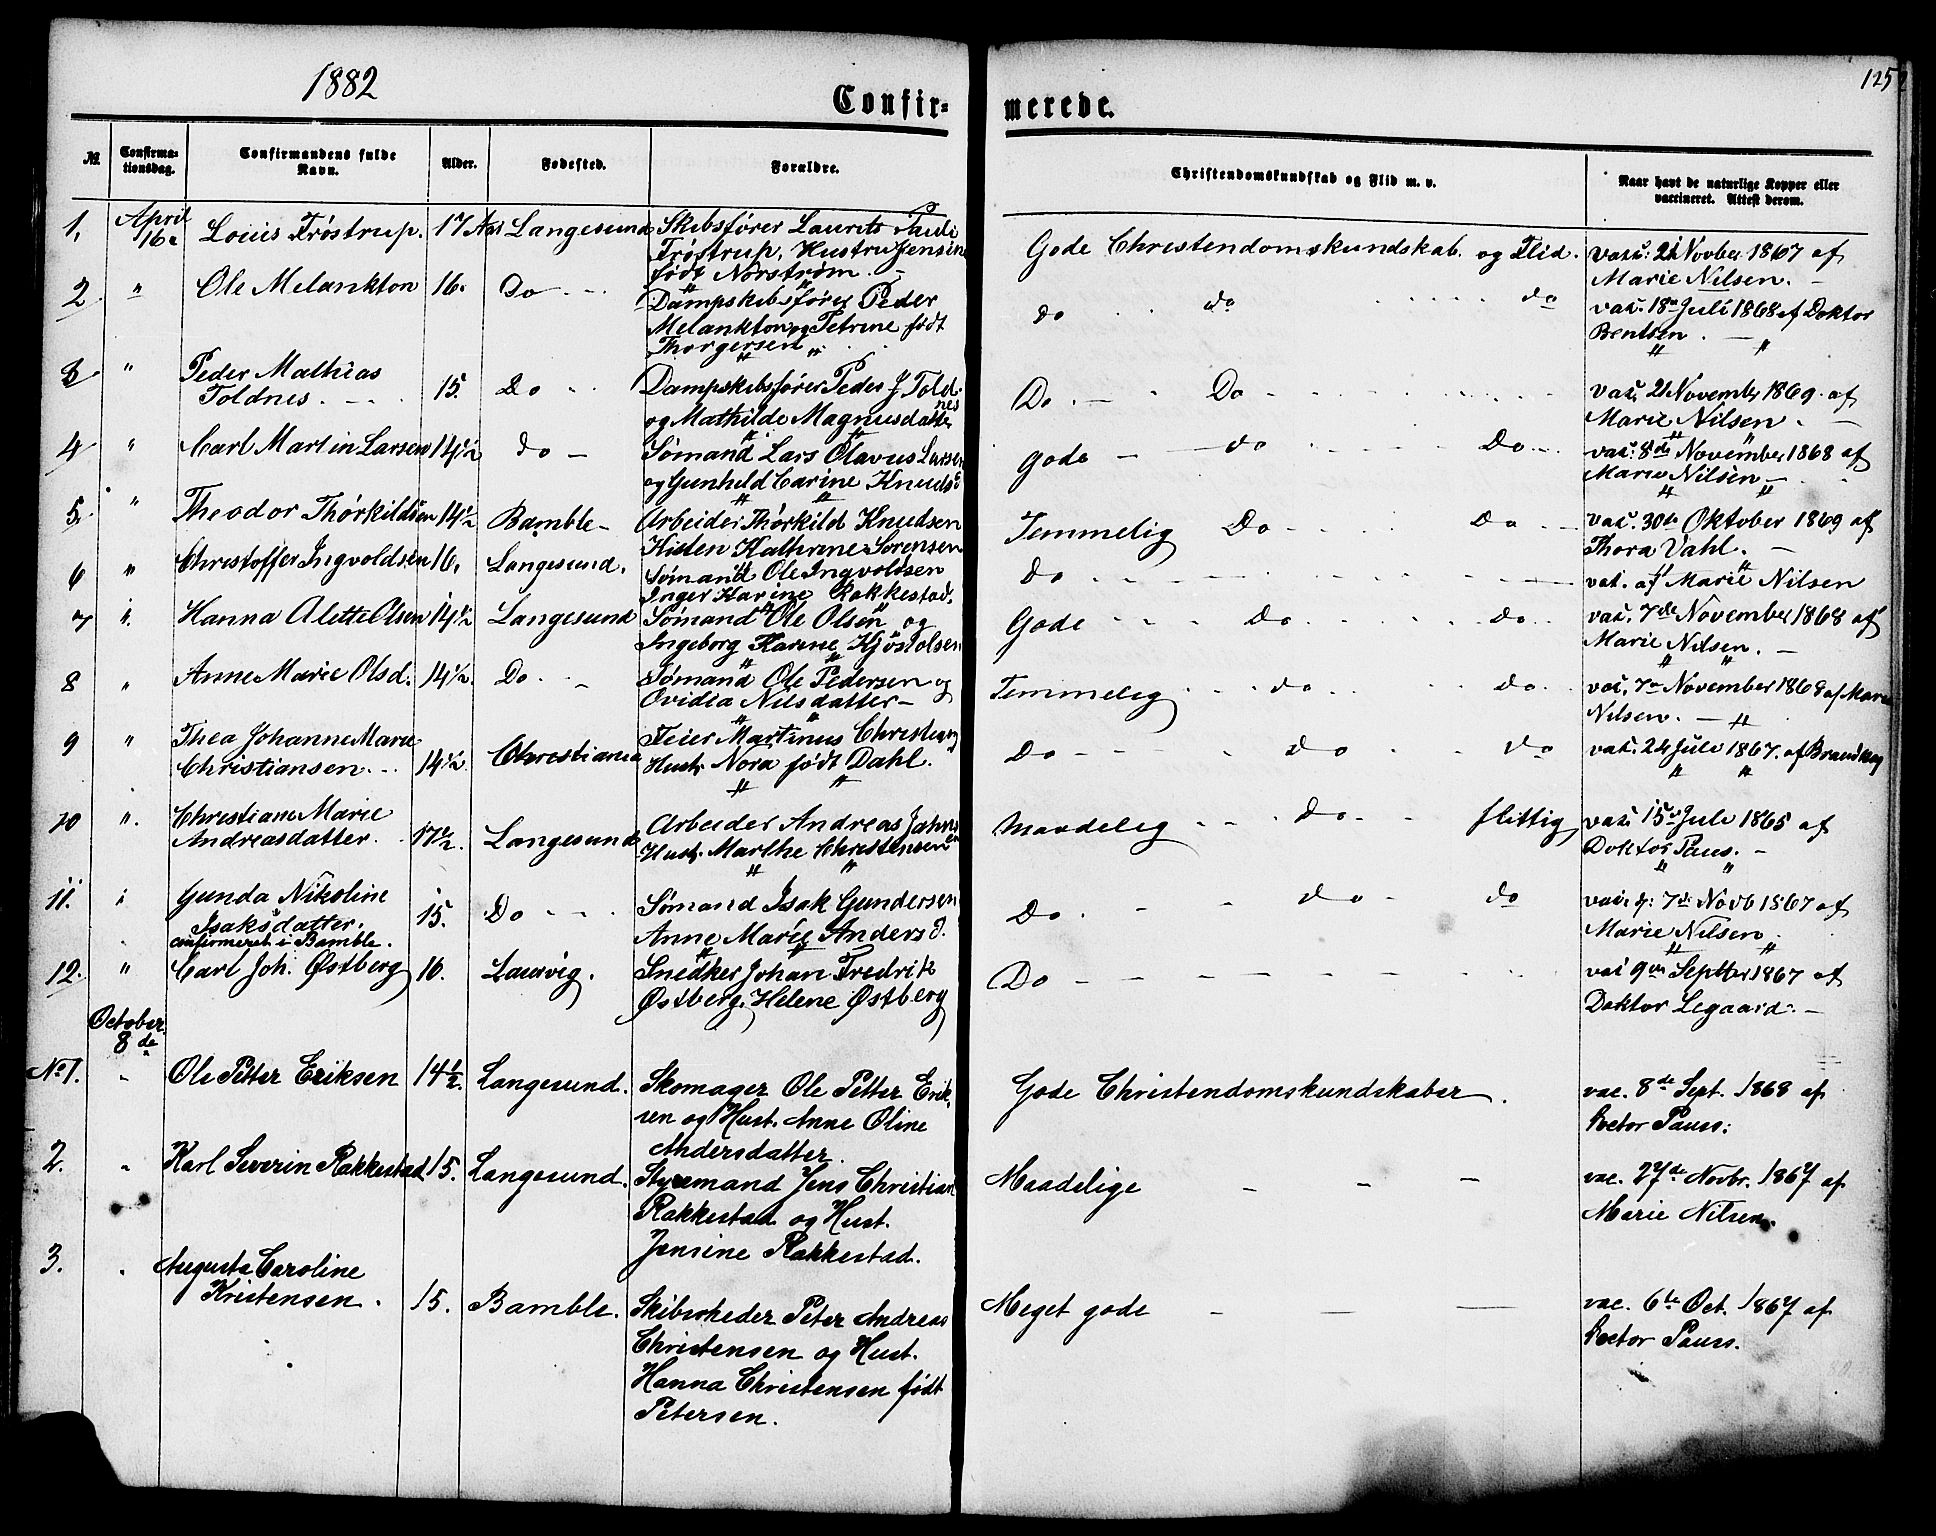 1882
125
Confir-
merede.
№ Confirma-tionsdag. Confirmandens fulde Navn. Alder. Fødested. Forældre. Christendomskundskab og Flid m. v. Naar havt de naturlige Kopper eller vaccineret. Attest derom.
1. April 16de Louis Frøstrup. 17 Aar Langesund Skibsfører Laurits Paule
Frøstrup, Hustru Jensine
født Norstrøm.
Gode Christendomskundskab. og Flid. vacc: 21 Novber 1867 af
Marie Nilsen. —
2 " Ole Melankton 16. Do Dampskibsfører Peder
Melankton og Petrine født
Thorgersen
do do do vac. 18de Juli 1868 af Doktor
Bentsen
3 " Peder Mathias
Toldnes. 15. Do Dampskibsfører Peder J Told-
nes
og Mathilde Magnusdatter
Do. Do vac. 21 November 1869. af
Marie Nilsen.
4 " Carl Martin Larsen 14½ do Sømand Lars Olavus Larsen
og Gunhild Carine Knudsd
gode do Do vac. 8de November 1868 af
Marie Nilsen
5. " Theodor Thorkildsen 14½ Bamble Arbeider Thorkild Knudsen
Kisten Kathrine Sørensen
Temmelig Do Do vac. 30te Oktober 1869 af
Thora Dahl.
6 " Christoffer Ingvoldsen 16, Langesund. Sømand Ole Ingvoldsen
Inger Karine Rakkestad.
Do vac. af Marie Nilsen
7 " Hanna Alette Olsen 14½ Langesund Sømand Ole Olsen og
Ingeborg Karine Kjøstolsen
Gode Do. do vac. 7de November 1868 af
Marie Nilsen.
8 " Anne Marie Olsd. 14½. Do. Sømand Ole Pedersen og
Ovidia Nilsdatter
Temmelig do do. vac. 7de November 1868 af Marie
Nilsen.
9 " Thea Johanne Marie
Christiansen 14½. Christiania Feier Martinus
Hust. Nora født Dahl.
Do do do vac. 24 Juli 1867. af
10 " Christiane Marie
Andreasdatter. 17½. Langesund Arbeider Andreas
Hust. Marthe Christensen
maadelig Do. flittig vac. 15de Juli 1865 af
Doktor Paus.
11. " Gunda Nikoline
Isaksdatter.
confirmeret i Bamble. 15. Do Sømand Isak Gundersen
Anne Marie Andersd.
Do. do do vac. 7de Novb 1867 af
Marie Nilsen
12. " Carl Joh. Østberg 16. Laurvig. Snedker Johan Fredrik
Østberg, Helene Østberg
Do vac 9de Septber 1867 af
Doktor Legaard.
October
8de
No 1. " Ole Petter Eriksen 14½. Langesund. Skomager Ole Petter Erik-
sen og Hust. Anne Oline
Andersdatter.
Gode Christendomskundskaber. vac. 8de Sept. 1868 af
Doctor Pauss:
2. " Karl Severin Rakkestad 15. Langesund. Styrmand Jens Christian
Rakkestad og Hust.
Jensine Rakkestad.
Maadelige — — — vac. 27de Novbr. 1867 af
Marie Nilsen.
3. " Augusta Caroline
Kristensen. 15. Bamble. Skibsrheder Peter Andreas
Christensen og Hust.
Hanna Christensen født
Petersen.
Meget gode — — — vac. 6te Oct. 1867 af
Doctor Pauss.